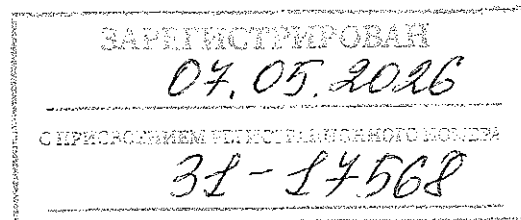 ЗАРЕГИСТРИРОВАН
07.05.2026
С ПРИСВОЕНИЕМ РЕГИСТРАЦИОННОГО НОМЕРА
31-17568